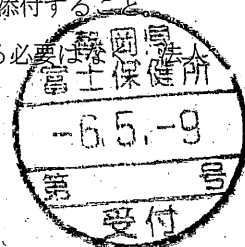 添付すること。
る必要はな　法人
静岡県
富士保健所
-6.5.-9
第　号
受付